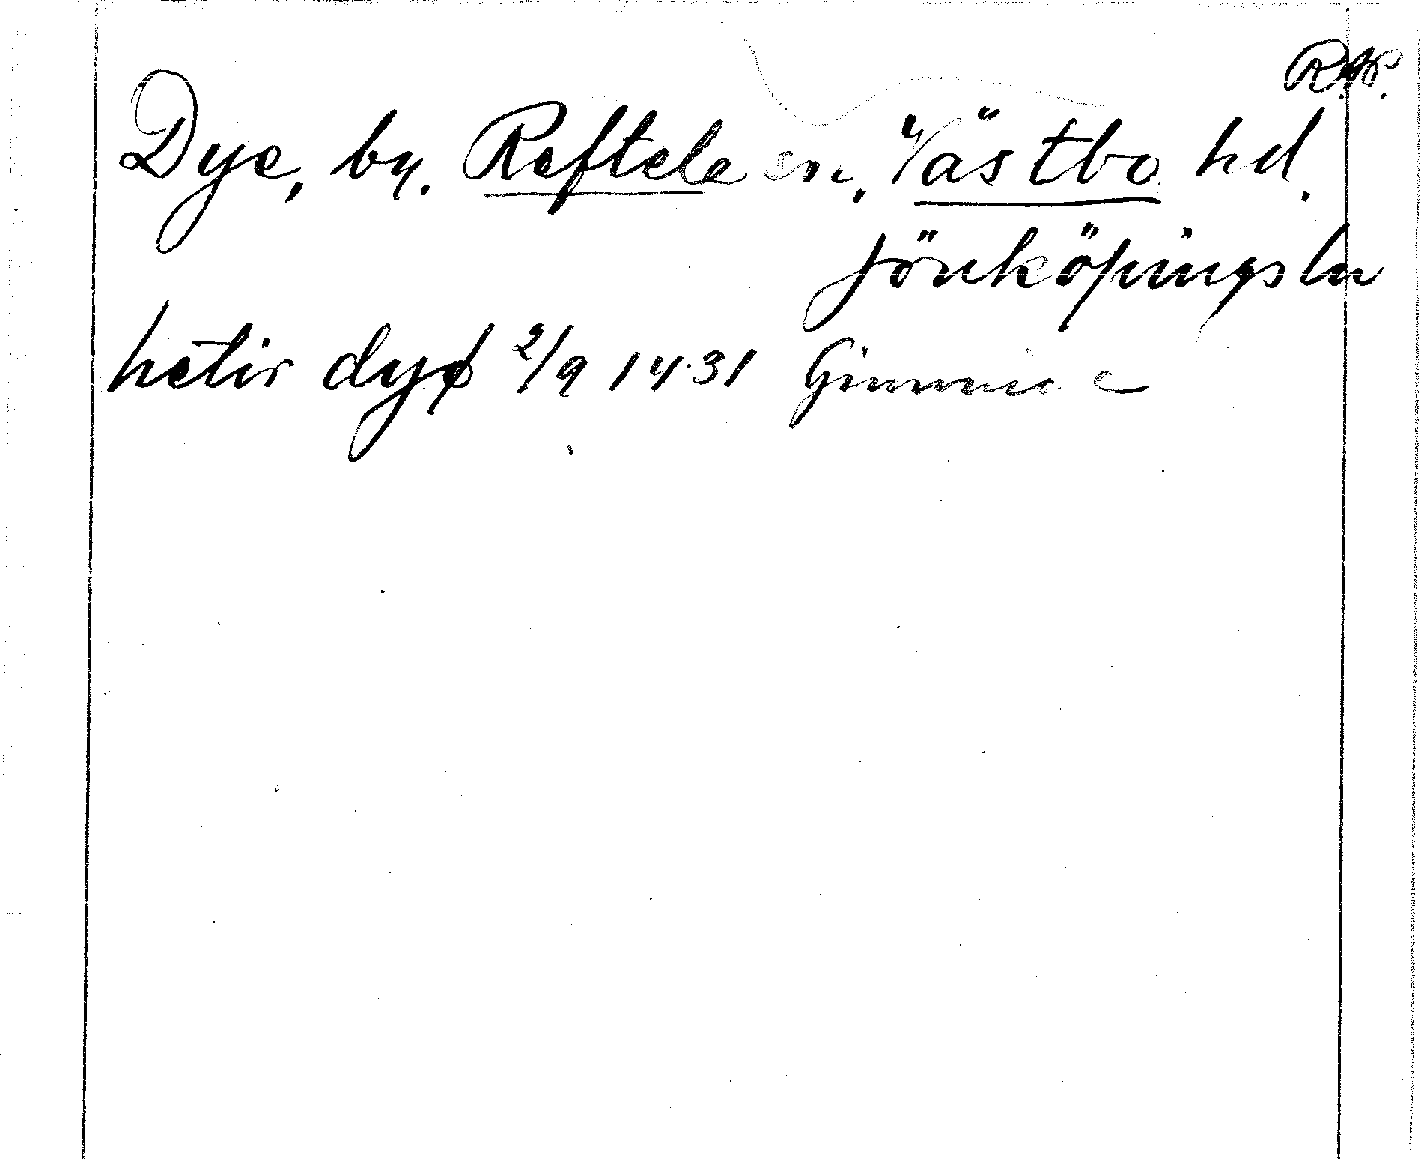 R.A.P.
Dye, by. Reftele sn, Västbo hd.
Jönköpings ln
hetir dyø 2/9 1431 Gimmene